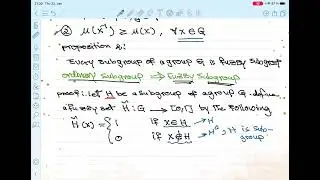 ② μ(x⁻¹) ≥ μ(x), ∀x∈G
proposition 2:
Every subgroup of a group G is fuzzy subgroup
ordinary subgroup ⟹ Fuzzy subgroup
proof: let H be a subgroup of a group G. define
a fuzzy set H̃: G → [0,1] by the following
H̃(x) = { 1 if x∈H → H
0 if x∉H → Hᶜ, H is sub-
group